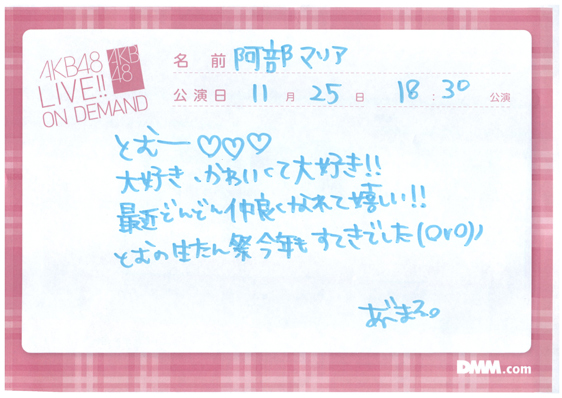 AKB48
LIVE!!
ON DEMAND
AKB
48
名前 阿部マリア
公演日 11月25日 18:30公演
とむー♡♡♡
大好き、かわいくて大好き!!
最近どんどん仲良くなれて嬉しい!!
とむの生たん祭今年もすてきでした(OvO)ノ
あべまる。
DMM.com